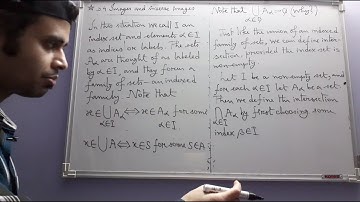 * 2.9 Images and Inverse Images
In this situation we call I an
index set and elements α∈I
as indices or labels. The sets
Aα are thought of as labeled
by α∈I, and they form a
family of sets - an indexed
family. Note that
x∈⋃Aα ⟺ x∈Aα for some
α∈I α∈I
x∈⋃A ⟺ x∈S for some S∈A
Note that ⋃Aα=∅ (why?)
α∈∅
Just like the union of an indexed
family of sets, we can define inter-
section provided the index set is
non-empty.
Let I be a non-empty set, and
for each α∈I let Aα be a set.
Then we define the intersection
⋂Aα by first choosing some
α∈I
index β∈I.